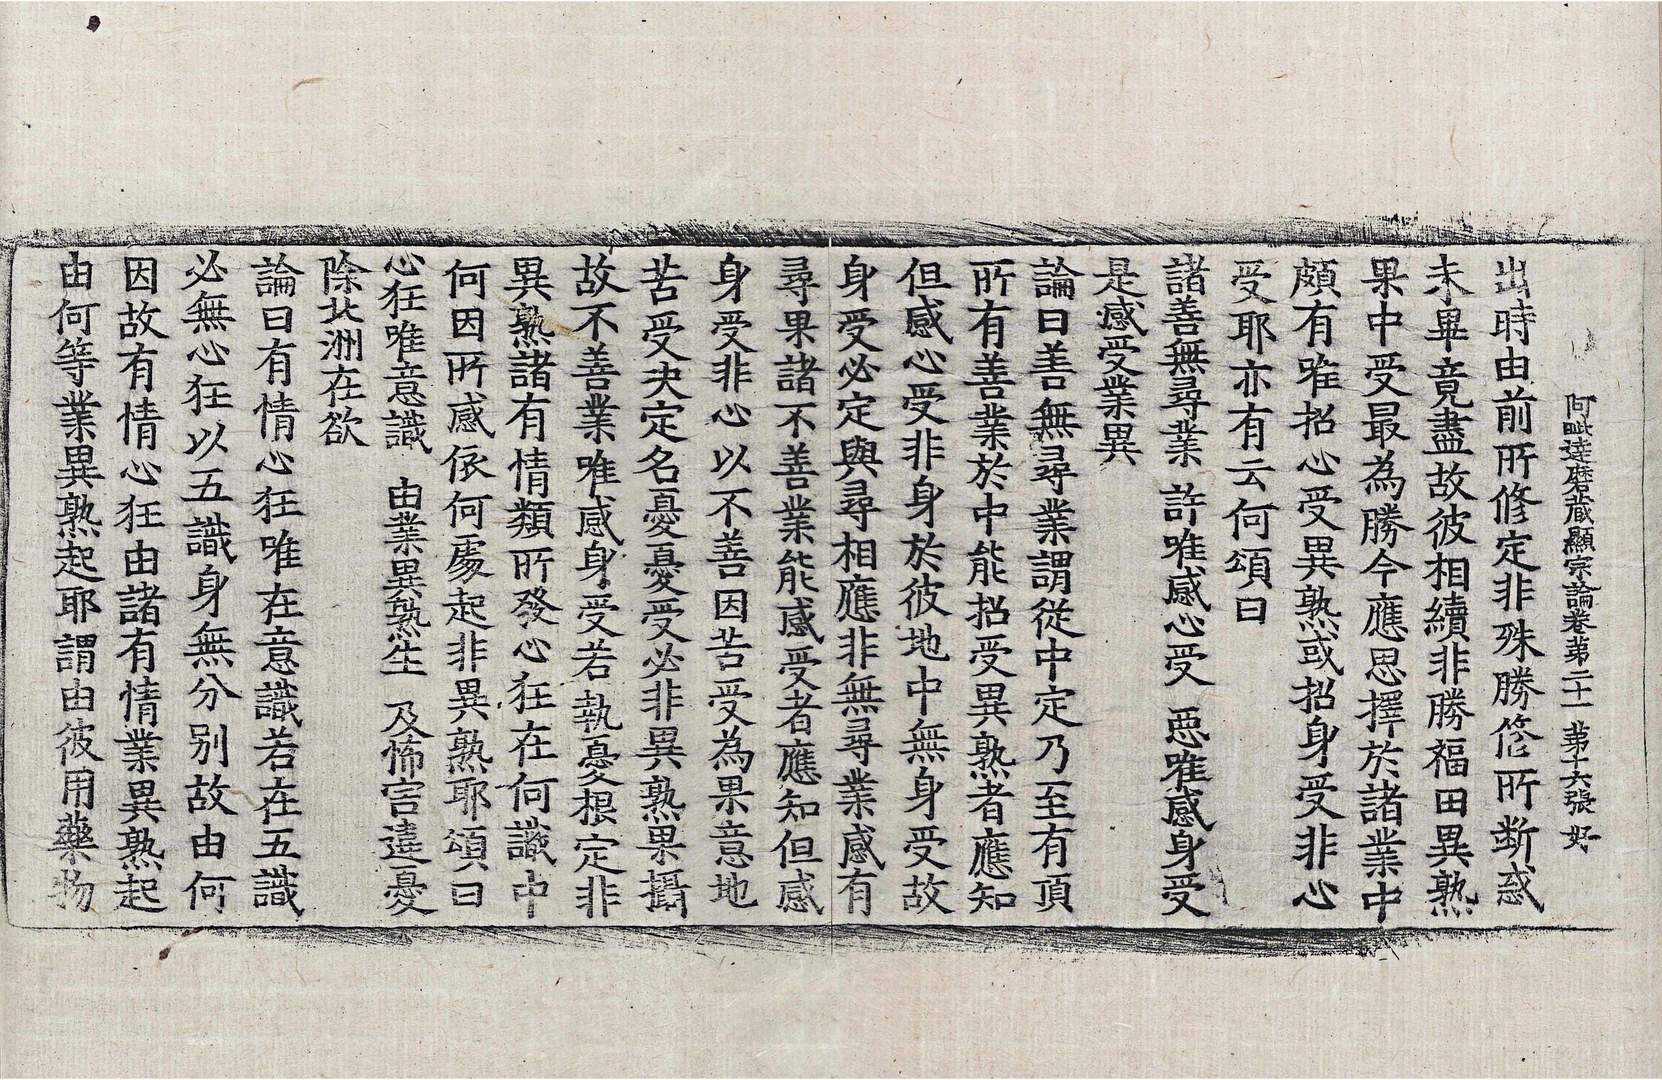 阿毗達磨藏顯宗論卷第二十一 第十六張 好
出時由前所修定非殊勝修所斷惑
未畢竟盡故彼相續非勝福田異熟
果中受最為勝今應思擇於諸業中
頗有唯招心受異熟或招身受非心
受耶亦有云何頌曰
諸善無尋業 許唯感心受 惡唯感身受
是感受業異
論曰善無尋業謂從中定乃至有頂
所有善業於中能招受異熟者應知
但感心受非身於彼地中無身受故
身受必定與尋相應非無尋業感有
尋果諸不善業能感受者應知但感
身受非心以不善因苦受為果意地
苦受決定名憂憂受必非異熟果攝
故不善業唯感身受若執憂根定非
異熟諸有情類所發心狂在何識中
何因所感依何處起非異熟耶頌曰
心狂唯意識 由業異熟生 及怖害違憂
除北洲在欲
論曰有情心狂唯在意識若在五識
必無心狂以五識身無分別故由何
因故有情心狂由諸有情業異熟起
由何等業異熟起耶謂由彼用藥物